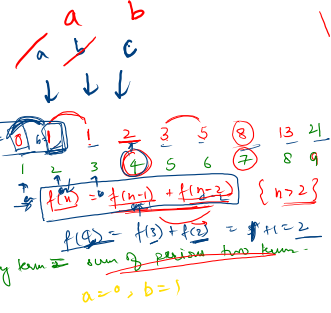 a b
a b c
0 1 1 2 3 5 8 13 21
1 2 3 4 5 6 7 8 9
f(n) = f(n-1) + f(n-2) { n>2 }
f(4) = f(3) + f(2) = 1+1=2
y term = sum of previous two term
a=0, b=1